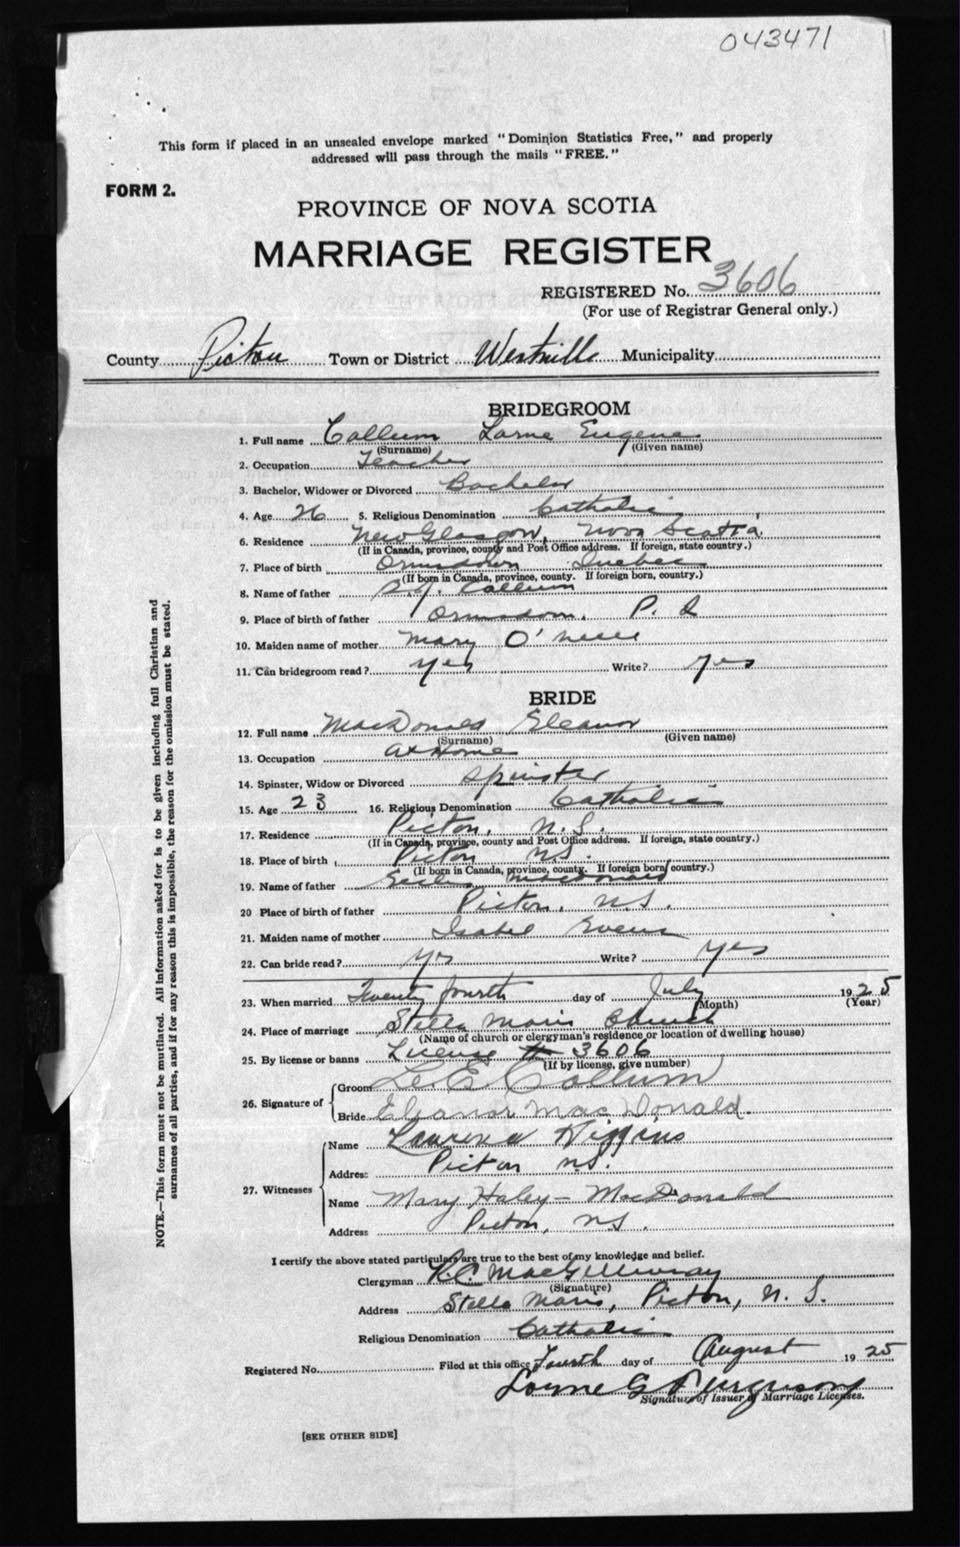 043471
This form if placed in an unsealed envelope marked "Dominion Statistics Free," and properly
addressed will pass through the mails "FREE."
FORM 2.
PROVINCE OF NOVA SCOTIA
MARRIAGE REGISTER
REGISTERED No. 3606
(For use of Registrar General only.)
County Pictou Town or District Westville Municipality
BRIDEGROOM
1. Full name Callum Lorne Eugene
(Surname) (Given name)
2. Occupation Teacher
3. Bachelor, Widower or Divorced Bachelor
4. Age 26 5. Religious Denomination Catholic
6. Residence New Glasgow, Nova Scotia
(If in Canada, province, county and Post Office address. If foreign, state country.)
7. Place of birth Ormsdown Quebec
(If born in Canada, province, county. If foreign born, country.)
8. Name of father Callum
9. Place of birth of father P. Q
10. Maiden name of mother Mary O'Neill
11. Can bridegroom read? yes Write? yes
BRIDE
12. Full name MacDonald Eleanor
(Surname) (Given name)
13. Occupation At Home
14. Spinster, Widow or Divorced Spinster
15. Age 23 16. Religious Denomination Catholic
17. Residence Pictou, N.S.
(If in Canada, province, county and Post Office address. If foreign, state country.)
18. Place of birth Pictou N.S.
(If born in Canada, province, county. If foreign born, country.)
19. Name of father MacDonald
20 Place of birth of father Pictou, N.S.
21. Maiden name of mother Isabel Evens
22. Can bride read? Yes Write? Yes
23. When married Twenty fourth day of July 1925
(Month) (Year)
24. Place of marriage Stella Maris Church
(Name of church or clergyman's residence or location of dwelling house)
25. By license or banns License # 3606
(If by license, give number)
26. Signature of
Groom L. E. Callum
Bride Eleanor MacDonald.
27. Witnesses
Name Higgins
Address Pictou N.S.
Name Mary Haley-MacDonald
Address Pictou, N.S.
I certify the above stated particulars are true to the best of my knowledge and belief.
Clergyman R.C. MacGillivray
(Signature)
Address Stella Maris, Pictou, N. S.
Religious Denomination Catholic
Registered No. Filed at this office Fourth day of August 1925
Lorne G Ferguson
Signature of Issuer of Marriage Licenses.
[SEE OTHER SIDE]
NOTE.—This form must not be mutilated. All information asked for is to be given including full Christian and
surnames of all parties, and if for any reason this is impossible, the reason for the omission must be stated.